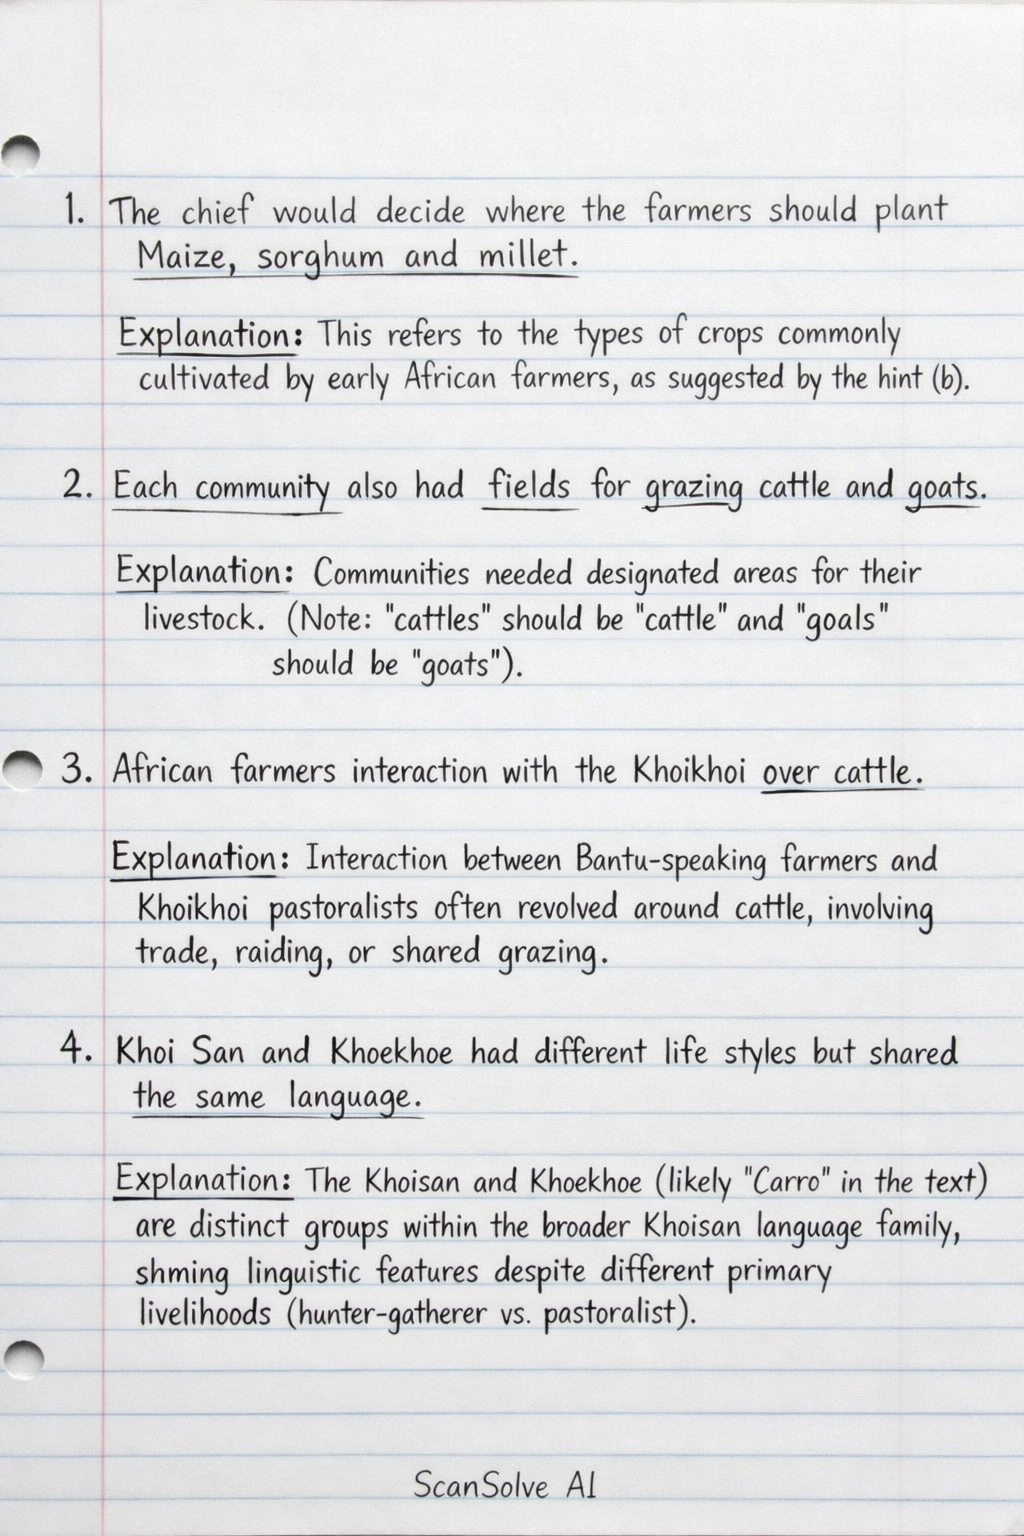 1. The chief would decide where the farmers should plant
Maize, sorghum and millet.
Explanation: This refers to the types of crops commonly
cultivated by early African farmers, as suggested by the hint (b).
2. Each community also had fields for grazing cattle and goats.
Explanation: Communities needed designated areas for their
livestock. (Note: "cattles" should be "cattle" and "goals"
should be "goats").
3. African farmers interaction with the Khoikhoi over cattle.
Explanation: Interaction between Bantu-speaking farmers and
Khoikhoi pastoralists often revolved around cattle, involving
trade, raiding, or shared grazing.
4. Khoi San and Khoekhoe had different life styles but shared
the same language.
Explanation: The Khoisan and Khoekhoe (likely "Carro" in the text)
are distinct groups within the broader Khoisan language family,
shming linguistic features despite different primary
livelihoods (hunter-gatherer vs. pastoralist).
ScanSolve AI